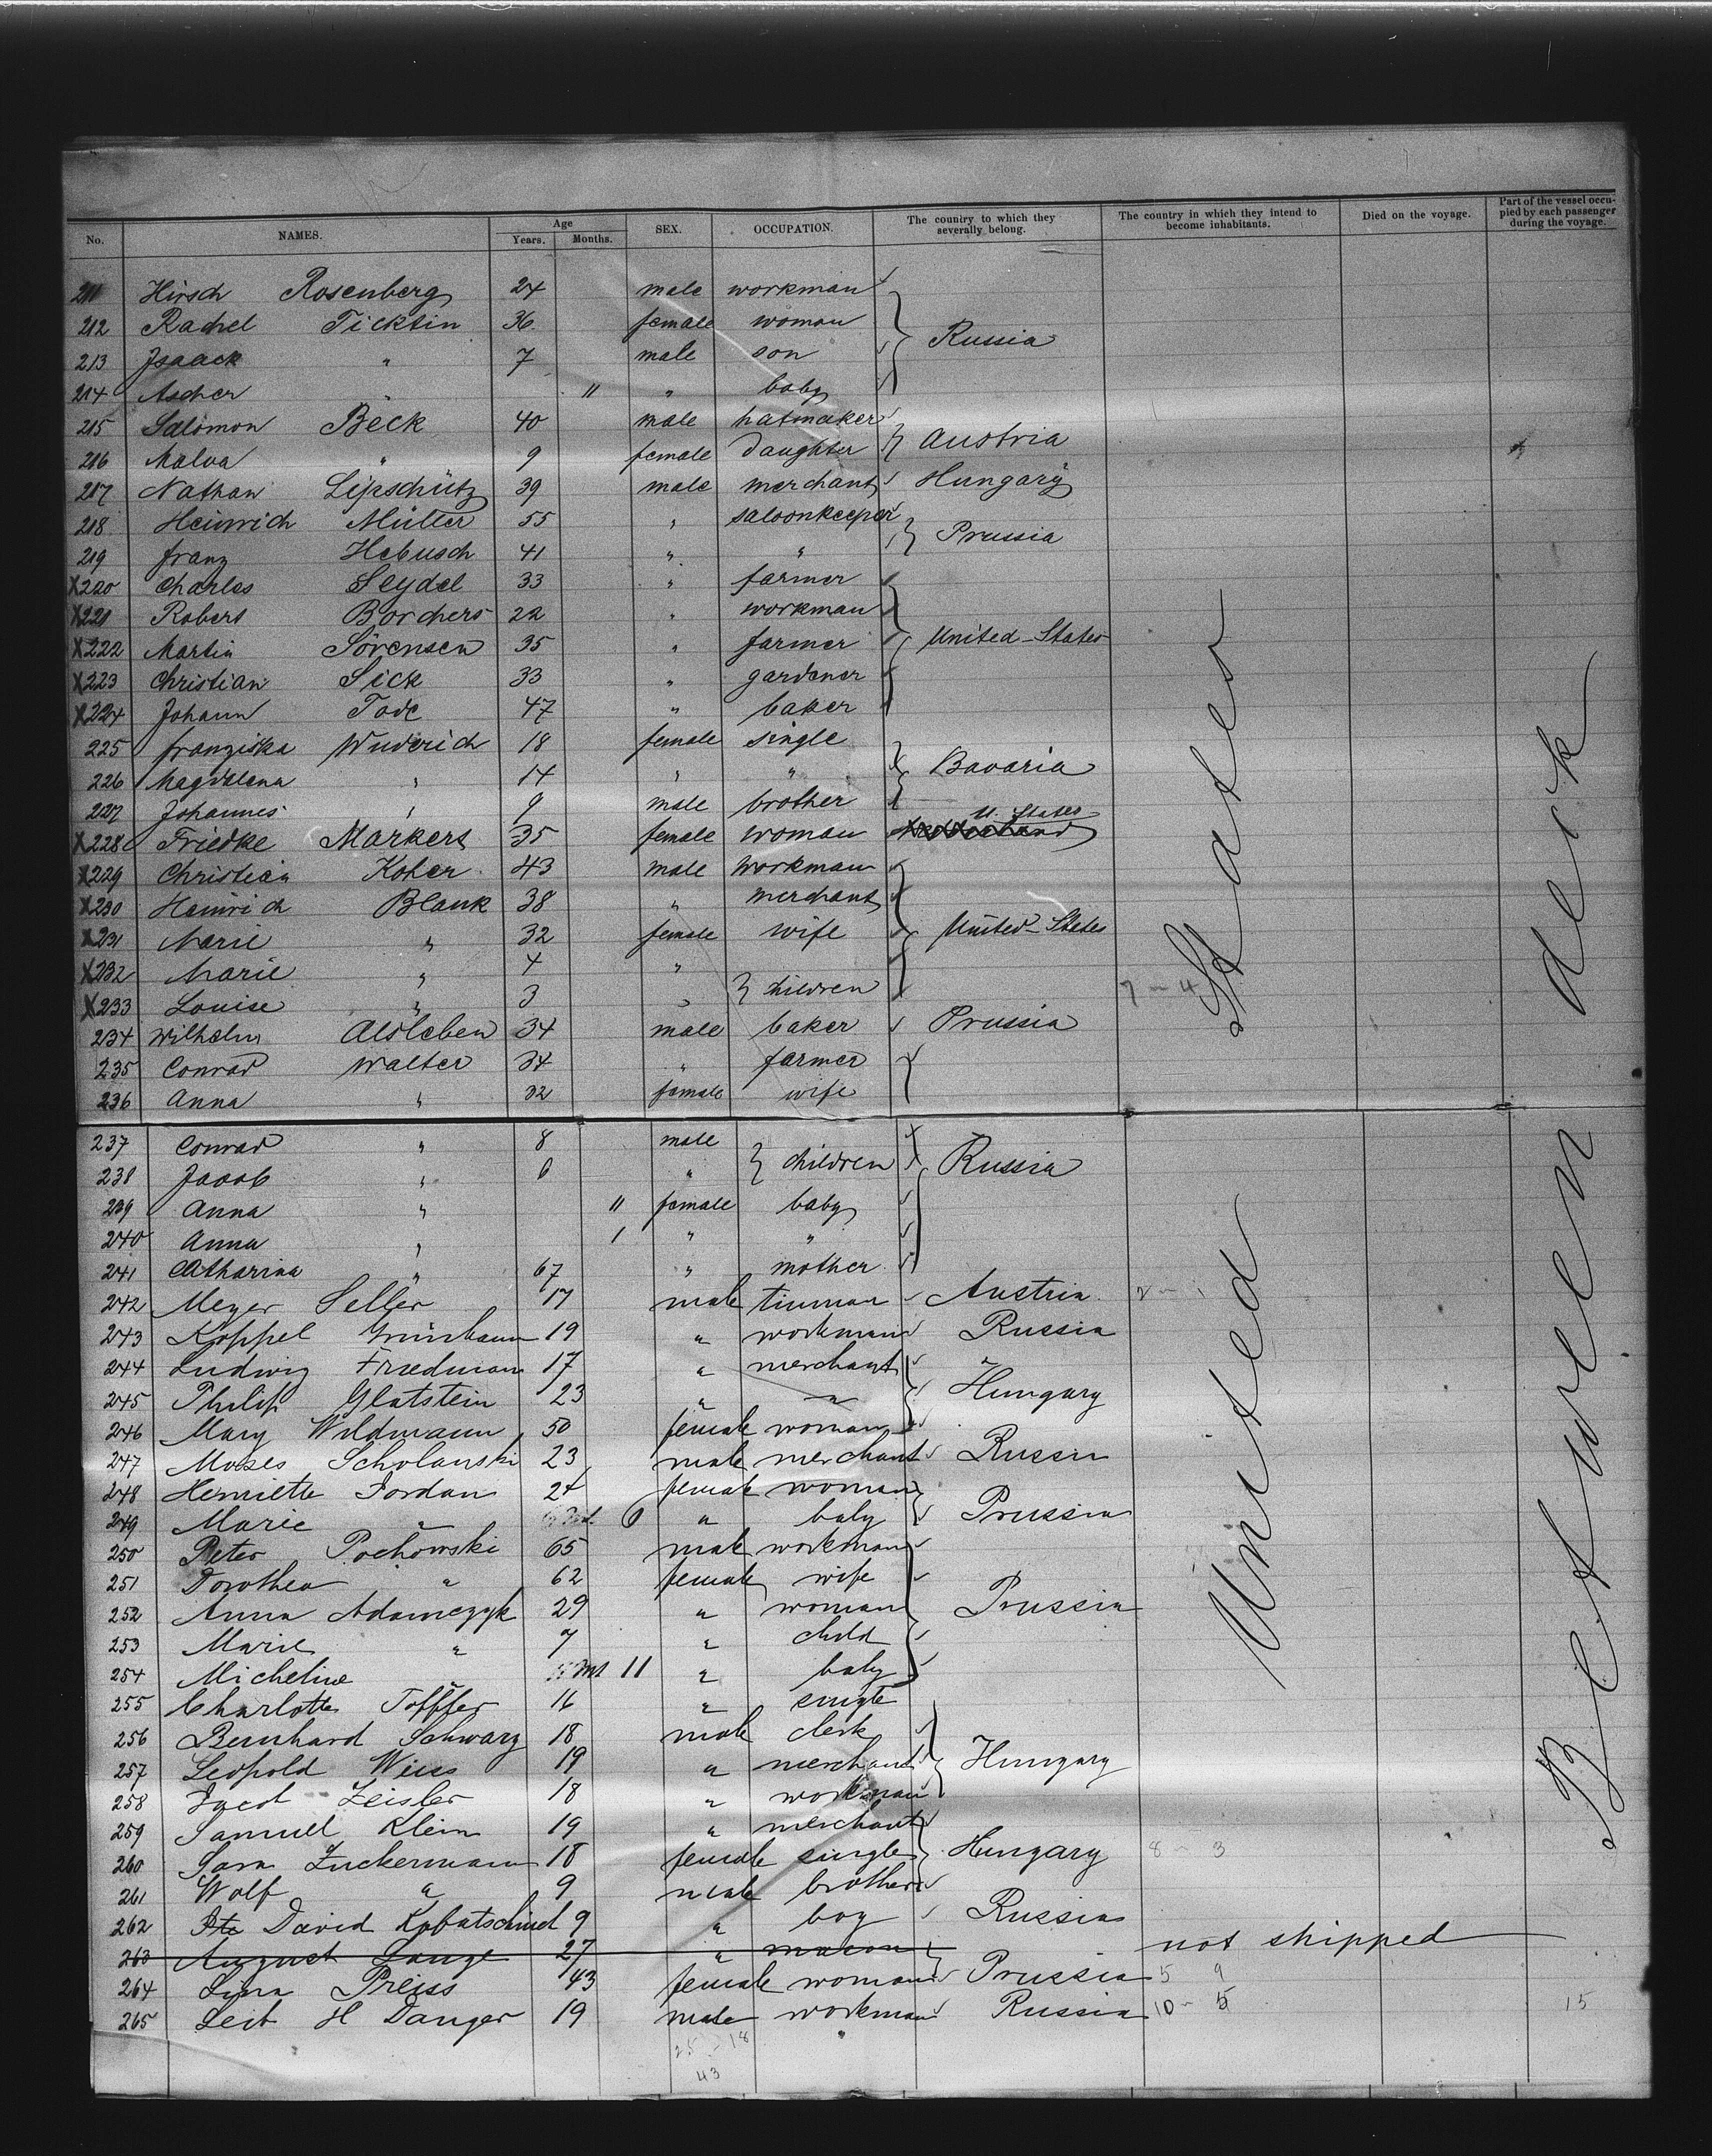 No. NAMES. Age Years. Months. SEX. OCCUPATION. The country to which they severally belong. The country in which they intend to become inhabitants. Died on the voyage. Part of the vessel occupied by each passenger during the voyage.
211 Hirsch Rosenberg 24 male workman
212 Rachel Ticktin 36 female woman
Russia
213 Isaack " 7 male son
214 Ascher " 11 " baby
215 Salomon Beck 40 male hatmaker
Austria
216 Malva " 9 female daughter
217 Nathan Lipschütz 39 male merchant Hungary
218 Heinrich Müller 55 " saloonkeeper
Prussia
219 Franz Hebusch 41 " "
X220 Charles Seydel 33 " farmer
X221 Robert Borchers 22 " workman
X222 Martin Sörensen 35 " farmer United-States
X223 Christian Sick 33 " gardener
X224 Johann Tode 47 " baker
225 Franziska Wuderich 18 female single
226 Magdalena " 14 " " Bavaria
227 Johannes " 9 male brother
X228 Friedke Markers 35 female woman U. States
X229 Christian Koker 43 male workman
X230 Heinrich Blank 38 " merchant
X231 Marie " 32 female wife United-States
X232 Marie " 4 "
children
X233 Louise " 3 " 7 - 4
234 Wilhelm Alsleben 34 male baker Prussia
235 Conrad Walter 34 " farmer
236 Anna " 32 female wife
237 Conrad " 8 male
children Russia
238 Jacob " 6 "
239 Anna " 11 female baby
240 Anna " 1 " "
241 Catharina " 67 " mother
242 Meyer Seller 17 male tinman Austria
243 Koppel Grünbaum 19 " workman Russia
244 Ludwig Friedman 17 " merchant "
245 Philip Glatstein 23 " " Hungary
246 Mary Wildmann 50 female woman
247 Moses Scholanski 23 male merchant Russia
248 Henriette Jordan 24 female woman
249 Marie " 6 " baby Prussia
250 Peter Pochowski 65 male workman
251 Dorothea " 62 female wife
252 Anna Adamczyk 29 " woman Prussia
253 Marie " 7 " child
254 Micheline " 11 " baby
255 Charlotte Töffler 16 " single
256 Bernhard Schwarz 18 male clerk
257 Leopold Weiss 19 " merchant Hungary
258 Jacob Zeisler 18 " workman
259 Samuel Klein 19 " merchant
260 Sara Zuckermann 18 female single Hungary 8 - 3
261 Wolf " 9 male brother
262 David Kabatschind 9 " boy Russia
263 August Lange 27 " mason not shipped
264 Lina Preiss 43 female woman Prussia 5 9
265 Leib H Danger 19 male workman Russia 10 - 5 15
25 - 18
43
United States
Between deck